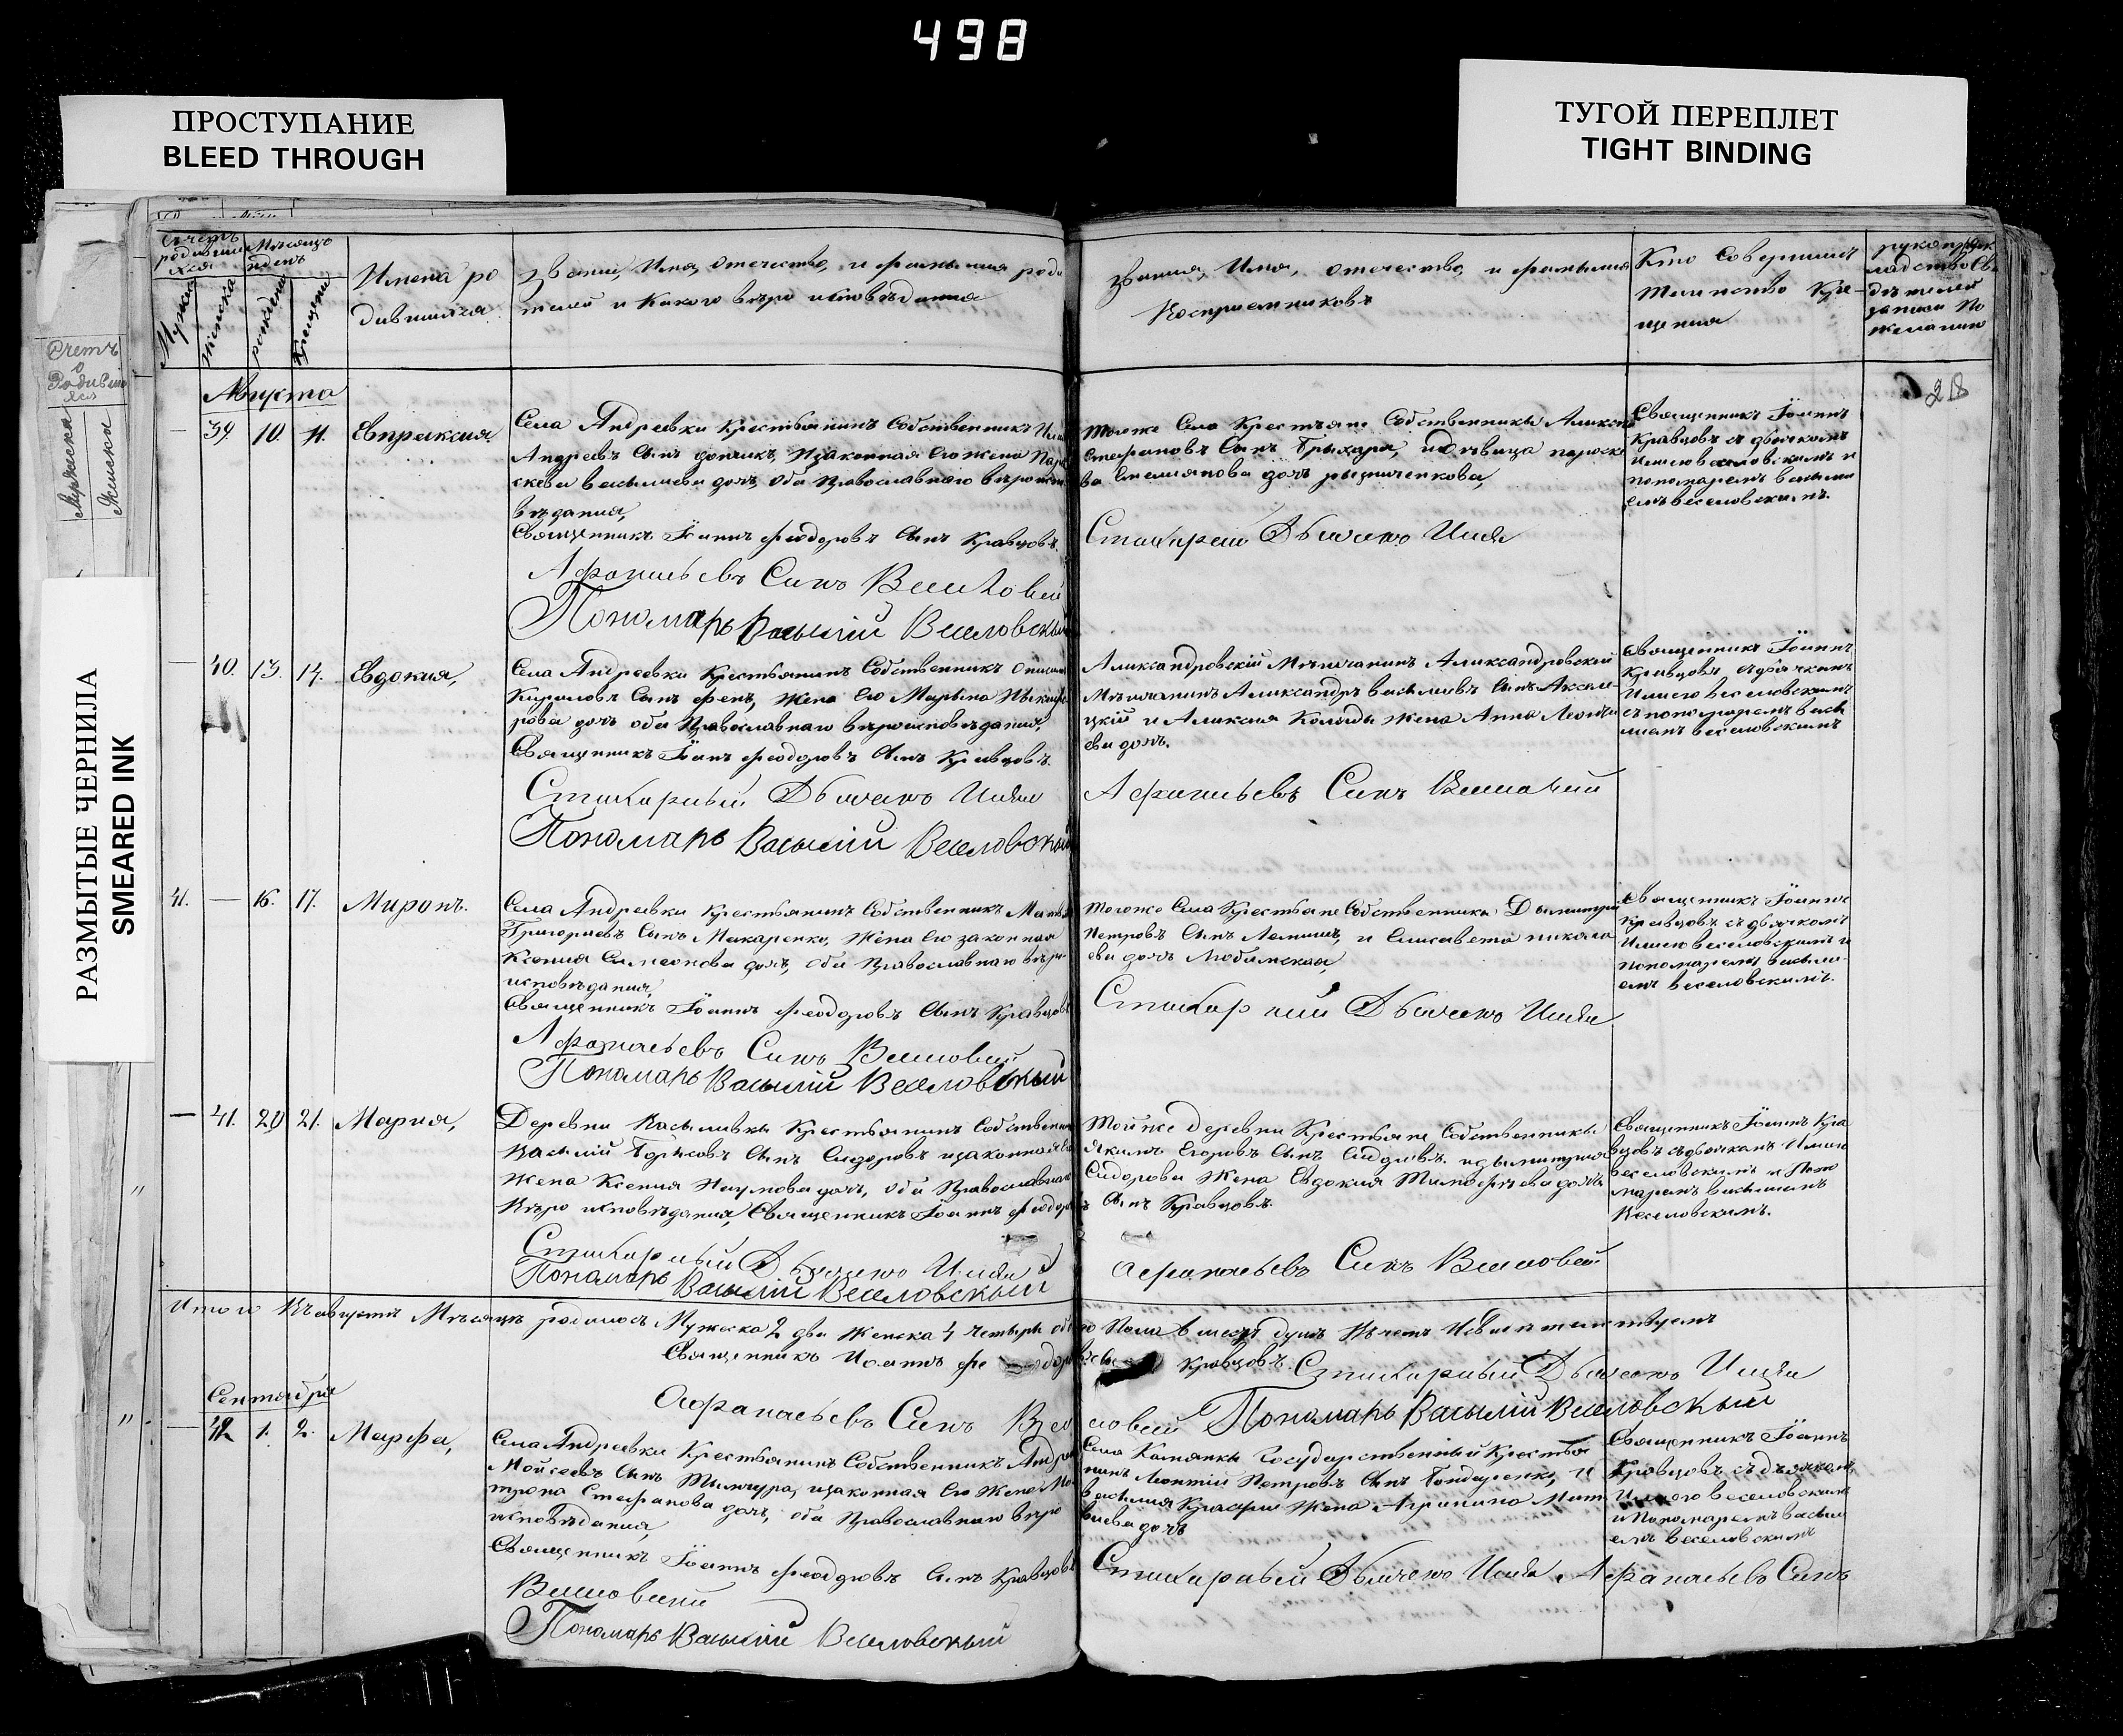 498
ПРОСТУПАНИЕ
BLEED THROUGH
ТУГОЙ ПЕРЕПЛЕТ
TIGHT BINDING
РАЗМЫТЫЕ ЧЕРНИЛА
SMEARED INK
Счетъ
родивши
хся
Мѣсяцъ
и день
Мужска
Женска
рожденія
Крещенія
Имена ро
дившихся
Званіе, Имя, Отечество, и фамилия роди
телей и Какого вѣро исповѣдания
Звания, Имя, отечество, и фамилия
Воспріемниковъ
Кто Совершилъ
Таинство Кре-
щения
Августа
218
39. 10. 11. Евпраксия
Села Андреевки Крестьянинъ Собственникъ
Андреевъ Сынъ изаконная Его жена Пара
скева васильева дочь, Оба Православнаго вѣро испо
вѣдания,
Священникъ Іоаннъ феодоровъ Сынъ Кравцовъ.
Афанасьевъ Синъ
Пономарь Василий Веселовский
тогоже Села Крестьяне Собственники Аликсей
Стефановъ Сынъ идѣвица параске
ва Емелиянова дочь
Стихарный Дьячекъ Илия
Священникъ Іоаннъ
Кравцовъ съ дьячкомъ
Илиею веселовскимъ и
пономаремъ васили
емъ веселовскимъ.
40. 13. 14. Евдокия,
Села Андреевки Крестьянинъ Собственникъ
Кириловъ Сынъ фень, Жена Его Марына
рова дочь оба Православнаго вѣроисповѣдания,
Священникъ Іоанъ феодоровъ Сынъ Кравцовъ.
Стихарный Дьячекъ Илия
Пономарь Василий Веселовский
Алиександровскій Мѣщанинъ Алиександровский
Мѣщанинъ Алиександръ васильевъ Сынъ
цкій и Алиексия Коляды Жена Анна
ева дочь.
Афанасьевъ Синъ
Священникъ Іоаннъ
Кравцовъ съ дячкомъ
Илиею веселовскимъ
съ пономаремъ васи
лиемъ веселовскимъ
41. — 16. 17. Миронъ.
Села Андреевки Крестьянинъ Собственникъ
Григориевъ Сынъ Макаренко, Жена Его законная
Ксения Симеонова дочь, Оба Православнаго вѣро-
исповѣдания,
Священникъ Іоаннъ феодоровъ Сынъ Кравцовъ
Афанасьевъ Синъ
Пономарь Василий Веселовский
тогоже Села Крестьяне Собственники Дымитрий
Петровъ Сынъ и Елисавета никола
ева дочь
Стихарний Дьячекъ Илия
Священникъ Іоаннъ
Кравцовъ съ дьячкомъ
Илиею веселовскимъ и
пономаремъ васили-
емъ веселовскимъ.
— 41. 20 21. Мария,
Деревни Васильевки Крестьянинъ Собственникъ
Василий Сынъ Сидоровъ изаконная
Жена Ксения Наумова дочь, Оба Православнаго
Вѣро исповѣдания, Священникъ Іоаннъ феодоровъ
Стихарный Дьячекъ Илия
Пономарь Василий Веселовский
Тойже деревни Крестьяне Собственники
Якимъ Егоровъ Сынъ Сидоровъ. идымитрия
Сидорова Жена Евдокия Тимофѣева дочь
Сынъ Кравцовъ.
Афанасьевъ Синъ
Священникъ Іоаннъ Кра
вцовъ съ дьячкомъ Илиею
веселовскимъ и Поно
маремъ василиемъ
Веселовскимъ.
Итого Въ августѣ Мѣсяцѣ родилось Мужеска 2 два Женска 4 четыри обоего Пола
Священникъ Иоаннъ фе одоровъ Кравцовъ. Стихарный Дьячекъ Илия
Афанасьевъ Синъ Пономарь Василий Веселовский
Сентября
— 42 1. 2. Марфа,
Села Андреевки Крестьянинъ Собственникъ
Мойсеевъ Сынъ изаконная Его Жена Ма
трона Стефанова дочь, оба Православнаго вѣро
исповѣдания,
Священникъ Іоаннъ феодоровъ Сынъ Кравцовъ
Пономарь Василий Веселовский
Села Камянки Государственный Крестья
нинъ Леонтий Петровъ Сынъ Бондаренко, И
василия Жена Агрипина Мат
виева дочь
Стихарный Дьячекъ Илия Афанасьевъ Синъ
Священникъ Іоаннъ
Кравцовъ съ дьячкомъ
Илиею веселовскимъ
и Пономаремъ васили
емъ веселовскимъ